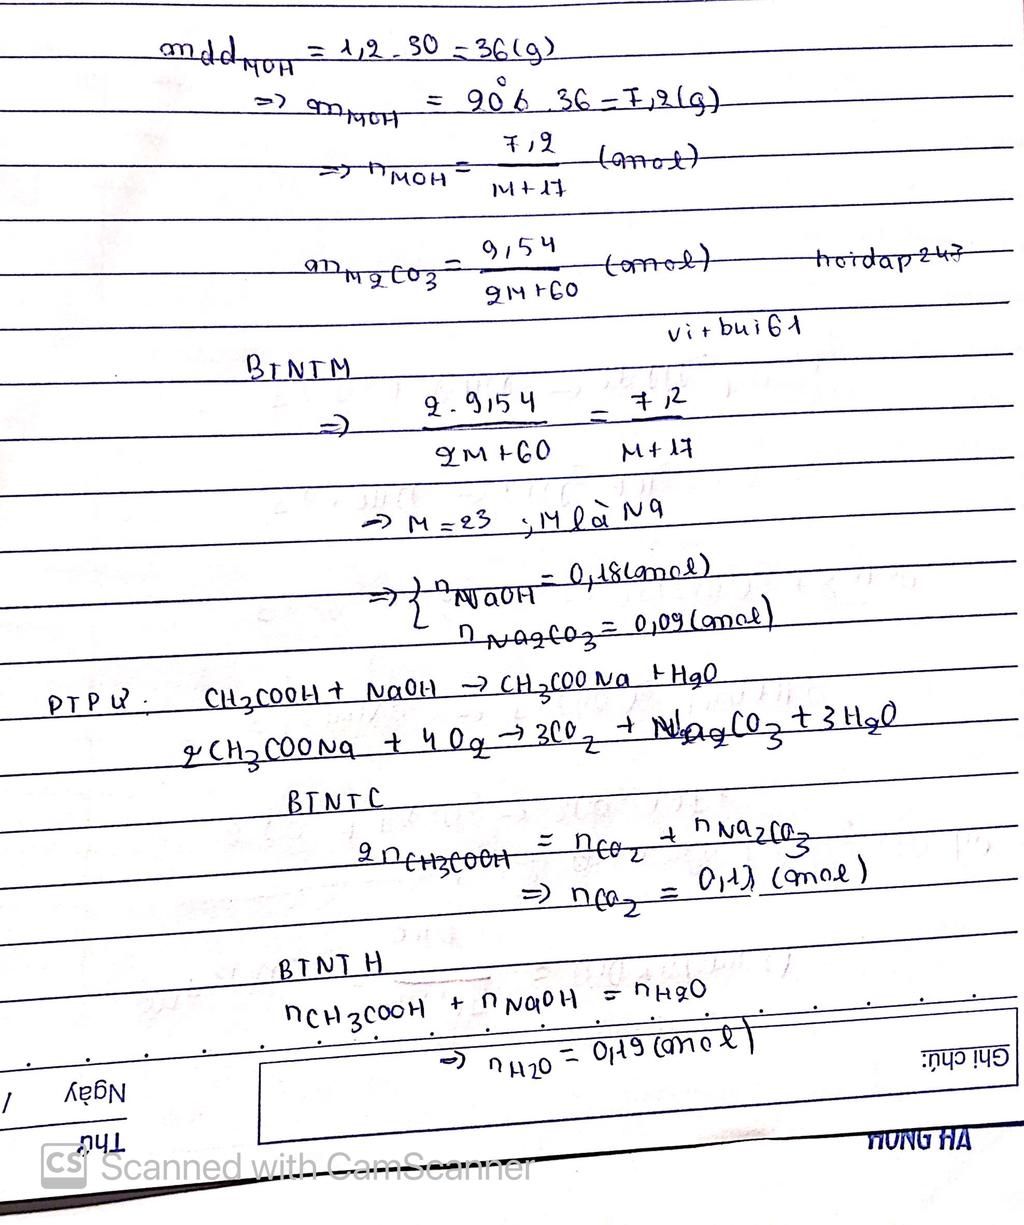 mdd MOH = 1,2 . 30 = 36 (g)
=> m MOH = 20% . 36 = 7,2 (g)
=> n MOH = 7,2 / M + 17 (mol)
m M2CO3 = 9,54 / 2M + 60 (mol) hoidap243
vi + bui61
BTNT M
=> 2 . 9,54 / 2M + 60 = 7,2 / M + 17
=> M = 23 ; M là Na
=> { n NaOH = 0,18 (mol)
n Na2CO3 = 0,09 (mol)
PTPƯ : CH3COOH + NaOH → CH3COONa + H2O
2CH3COONa + 4O2 → 3CO2 + Na2CO3 + 3H2O
BTNT C
2n CH3COOH = n CO2 + n Na2CO3
=> n CO2 = (mol)
BTNT H
n CH3COOH + n NaOH = n H2O
=> n H2O = 0,19 (mol)
Ghi chú:
Ngày /
Thứ
HONG HA
CS Scanned with CamScanner